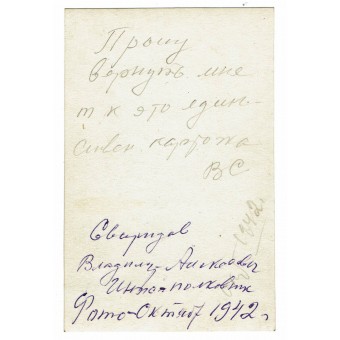 Прошу
вернуть мне
т к это един-
ствен карточка
ВС
1942 г.
Свиридов
Владимир Алексеевич
Инж-полковник
Фото-Октябрь 1942 г